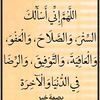 اللَّهُمَّ إِنِّي أَسْأَلُكَ
السِّتْرَ، وَالصَّلَاحَ، وَالْعَفْوَ،
وَالْعَافِيَةَ، وَالتَّوْفِيقَ، وَالرِّضَا
فِي الدُّنْيَا وَالْآخِرَةِ
بصمة خير